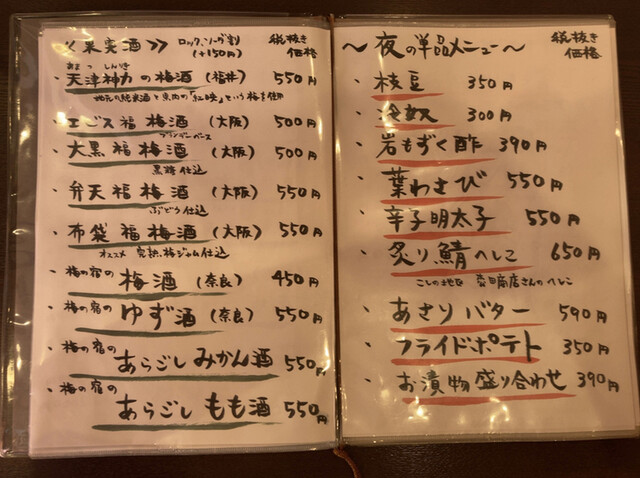 《果実酒》 ロック、ソーダ割 (+150円) 税抜き価格
・天津神力の梅酒(福井) 550円
あまつ しんりき
地元の純米酒と県内の「紅映」という梅を使用
・エビス福梅酒(大阪) 500円
ブランデーベース
・大黒福梅酒(大阪) 500円
黒糖仕込
・弁天福梅酒(大阪) 550円
ぶどう仕込
・布袋福梅酒(大阪) 550円
オススメ 完熟梅ジャム仕込
・梅の宿の梅酒(奈良) 450円
・梅の宿のゆず酒(奈良) 550円
・梅の宿のあらごしみかん酒 550円
・梅の宿のあらごしもも酒 550円
〜夜の単品メニュー〜 税抜き価格
・枝豆 350円
・冷奴 300円
・岩もずく酢 390円
・葉わさび 550円
・辛子明太子 550円
・炙り鯖へしこ 650円
こしの地区 商店さんのへしこ
・あさりバター 590円
・フライドポテト 350円
・お漬物盛り合わせ 390円